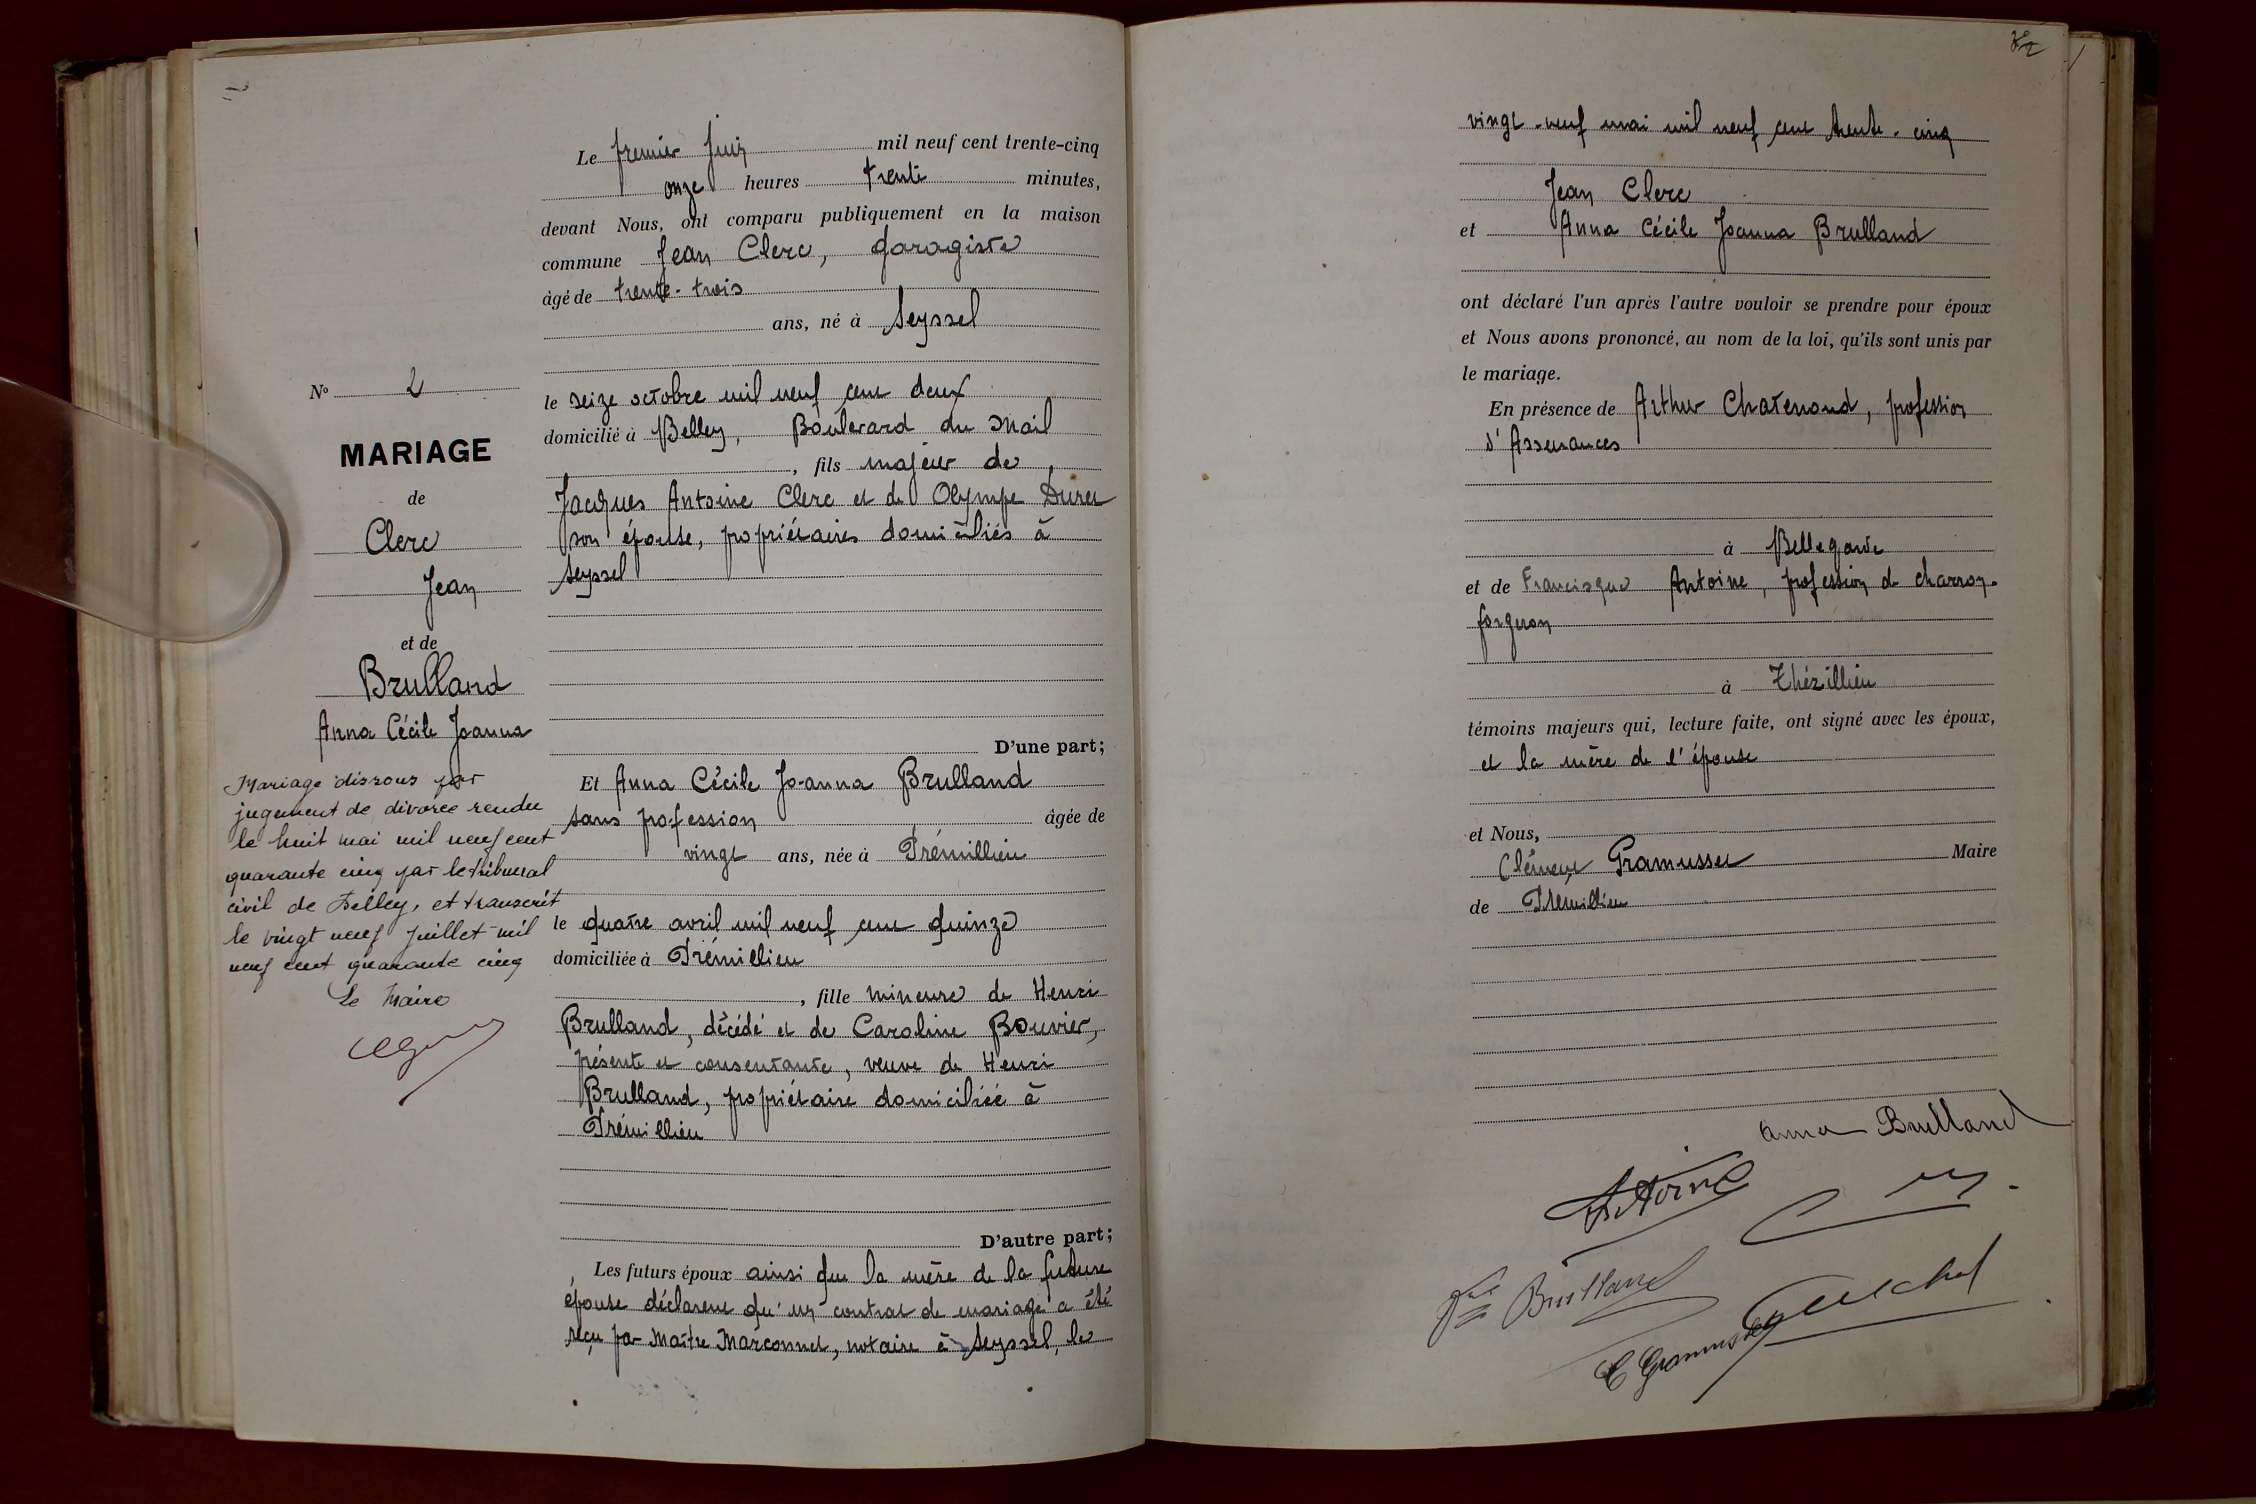 Le premier Juin mil neuf cent trente-cinq
onze heures trente minutes,
devant Nous, ont comparu publiquement en la maison
commune Jean Clerc, garagiste
âgé de trente-trois
ans, né à Seyssel
le seize octobre mil neuf cent deux
domicilié à Belley, Boulevard du Mail
, fils majeur de
Jacques Antoine Clerc et de Olympe Duret
son épouse, propriétaires domiciliés à
Seyssel
D'une part;
Et Anna Cécile Jo-anna Brulland
sans profession âgée de
vingt ans, née à Prémillieu
le quatre avril mil neuf cent quinze
domiciliée à Prémillieu
, fille mineure de Henri
Brulland, décédé et de Caroline Bouvier,
présente et consentante, veuve de Henri
Brulland, propriétaire domiciliée à
Prémillieu
D'autre part;
Les futurs époux ainsi que la mère de la future
épouse déclarent qu'un contrat de mariage a été
reçu par Maître Marconnet, notaire à Seyssel, le
No 2
MARIAGE
de
Clerc
Jean
et de
Brulland
Anna Cécile Joanna
Mariage dissous par
jugement de divorce rendu
le huit mai mil neuf cent
quarante cinq par le tribunal
civil de Belley, et transcrit
le vingt neuf juillet mil
neuf cent quarante cinq
Le Maire
82
vingt-neuf mai mil neuf cent trente-cinq
Jean Clerc
et Anna Cécile Joanna Brulland
ont déclaré l'un après l'autre vouloir se prendre pour époux
et Nous avons prononcé, au nom de la loi, qu'ils sont unis par
le mariage.
En présence de Arthur Chatenoud, profession
d'Assurances
à Bellegarde
et de Francisque Antoine, profession de charron-
forgeron
à Thézillieu
témoins majeurs qui, lecture faite, ont signé avec les époux,
et la mère de l'épouse
et Nous,
Clément Gramusset Maire
de Prémillieu
Anna Brulland
Antoine
Brulland
C Gramusset